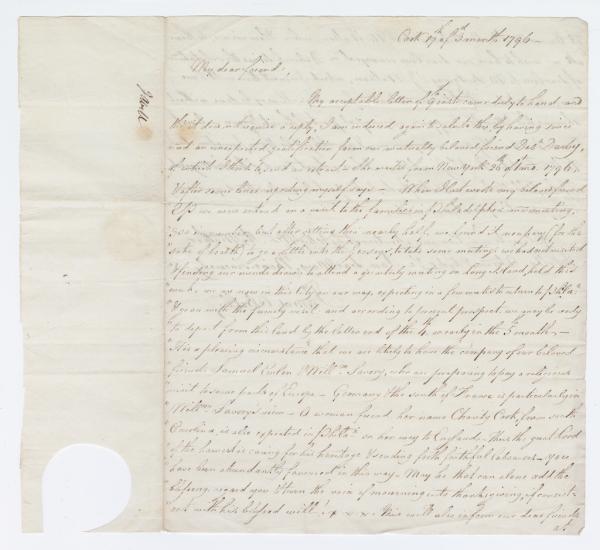 Cork 19th of 3d month 1796 –
My dear friend,
Thy acceptable letter of came duly to hand and
tho' it does not require a reply, I am induced again to salute thee, by having since
met an unexpected gratification from our mutually beloved friend Deb.h Darby,
of which I think to send an extract. She writes from New York 26th of 1mo. 1796,
&after some lines regarding myself says – When I last wrote my beloved friend
P.S. we were entered on a visit to the families in Philadelphia meeting,
but after sitting thro' nearly half, we found it necessary (for the
sake of health) to go a little into the Jerseys, to take some meetings we had not visited
& finding our minds drawn to attend a quarterly meeting on Long Island, held this
week, we are now in this City on our way, expecting in a few weeks to return to Phila.
& go on with the family visit and according to present prospect we may be ready
to depart from this land by the latter end of the 4th or early in the 5 month –
It is a pleasing circumstance that we are likely to have the company of our beloved
friends Samuel Emlen & Willm. Savery, who are preparing to pay a religious
visit to some parts of Europe – Germany & the south of France is particularly in
Willm. Savery's view – A woman friend her name Charity Cook, from south
Carolina, is also expected in Philada. on her way to England – thus the good Lord
of the harvest is caring for his heritage & sending forth faithful labourers – you
have been abundantly favoured in this way – May he that can alone add the
blessing, regard you & turn the voice of mourning into thanksgiving, if consist-
ent with his blessed will! x x x – This will also inform our dear friends
at